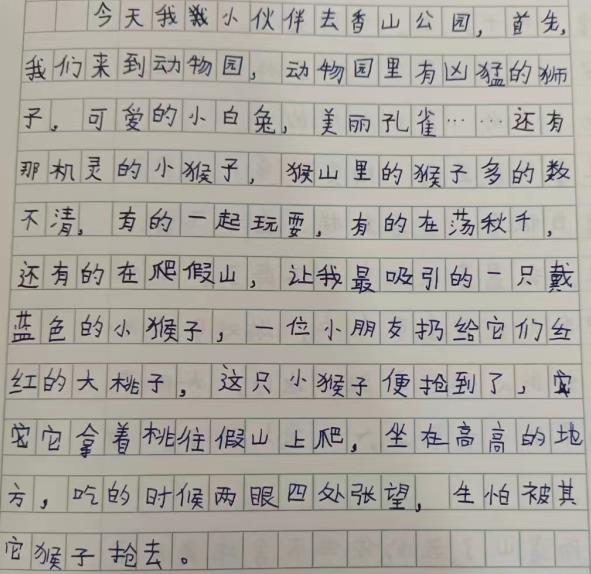 今天我找小伙伴去香山公园，首先，
我们来到动物园，动物园里有凶猛的狮
子。可爱的小白兔，美丽孔雀……还有
那机灵的小猴子，猴山里的猴子多的数
不清，有的一起玩耍，有的在荡秋千，
还有的在爬假山，让我最吸引的一只戴
蓝色的小猴子，一位小朋友扔给它们红
红的大桃子，这只小猴子便抢到了，
它拿着桃往假山上爬，坐在高高的地
方，吃的时候两眼四处张望，生怕被其
它猴子抢去。